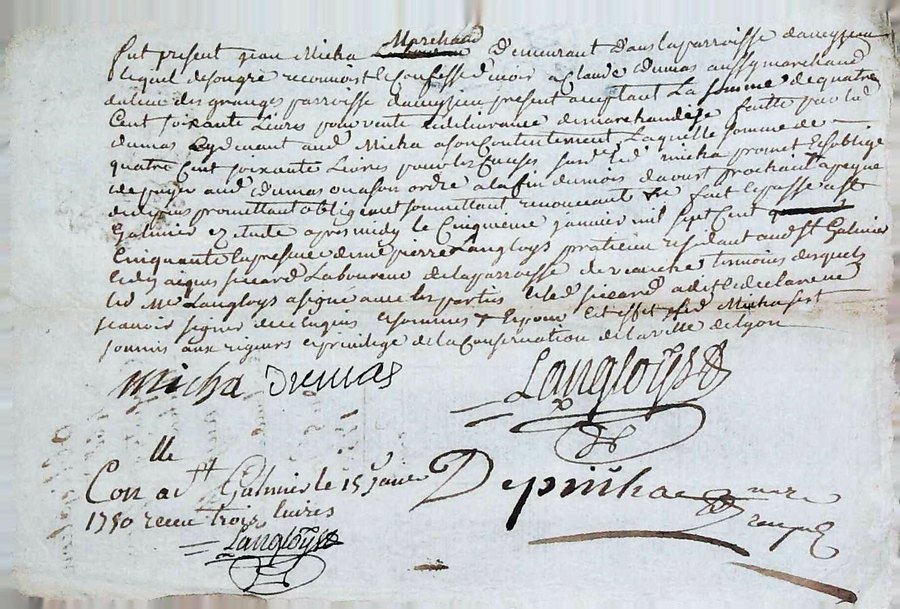 Fut present jean Micha Marchand Demeurant dans la parroisse daveyzieu
lequel de son gré reconnoist et Confesse devoir a Claude dumas aussy marchand
du lieu des granges parroisse daveyzieu present acceptant La somme de quatre
Cent soixante Livres pour vente et delivrance de marchandise faitte par led
dumas aud Micha a son Contentement, Laquelle somme de
quatre Cent soixante Livres pour les Causes led micha promet et soblige
de payer aud dumas ou a son ordre a la fin du mois daoust prochain a peyne
promettant obligeant soumettant renonceant fait et passé a st
Galmier ez etude apres midy le Cinquieme janvier mil sept Cent
Cinquante En presence de me pierre Langloys praticien residant aud st Galmier
et de jacques sicard Laboureur de la parroisse de temoins desquels
led Me Langloys a signé avec les parties et led sicard a dit et declaré ne
scavoir signer de ce Enquis et sommés + Et pour Cet effet led Micha sest
soumis aux rigueurs et privilege de la Conservation de la ville de Lyon
Micha Dumas Langloys
lle
Con a stt Galmier le 15e janvier
1750 receu trois livres
Langloys